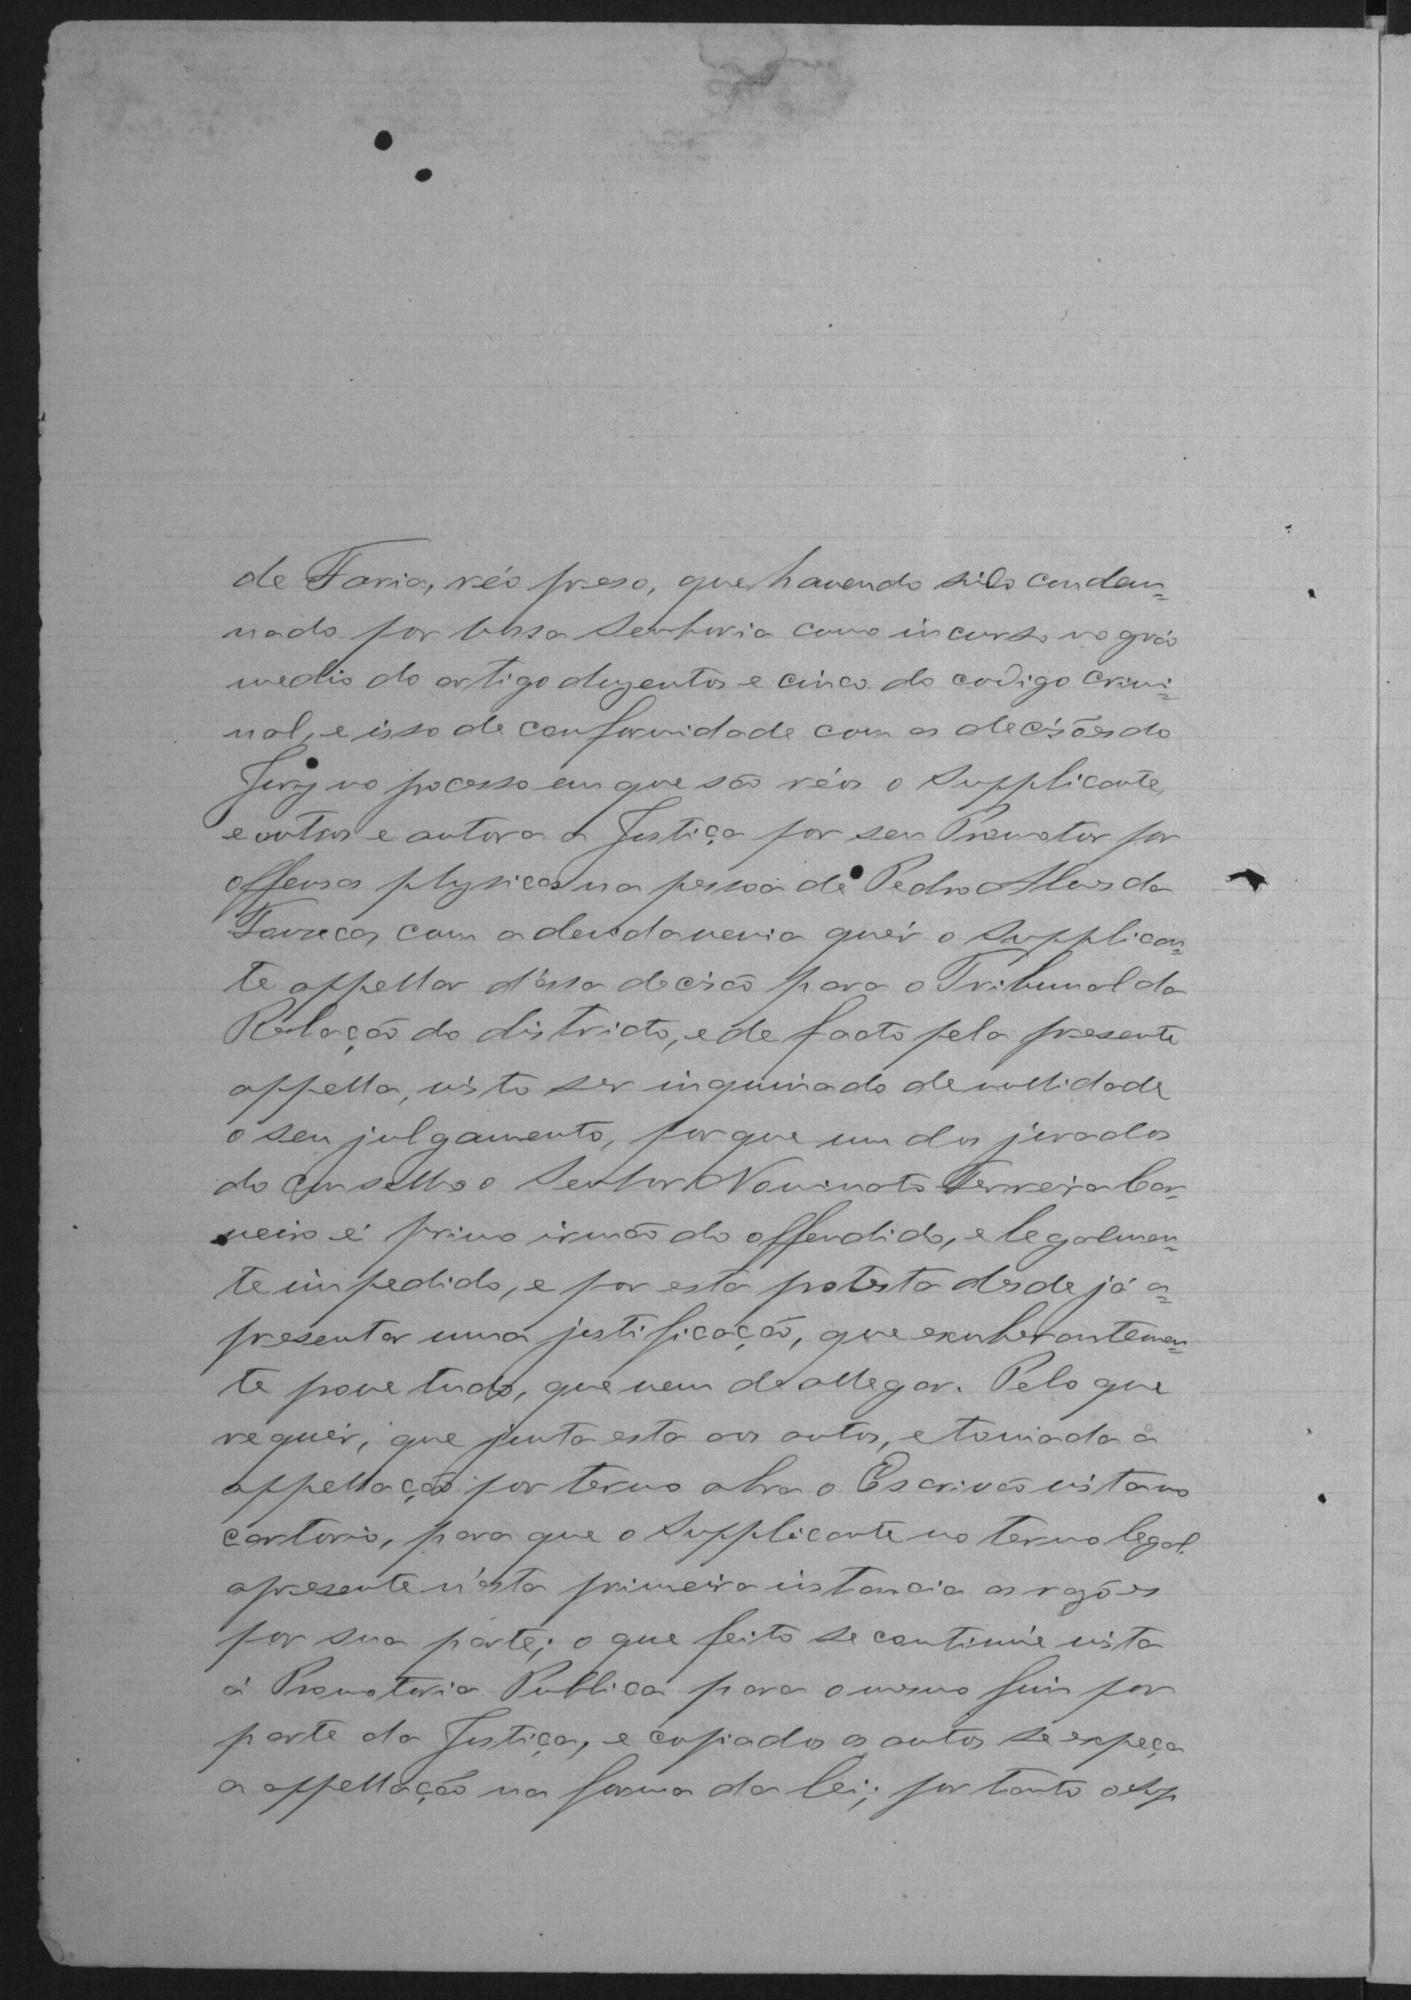 de Faria, réo preso, que havendo sido condem=
nado por Vossa Senhoria como incurso no gráo
medio do artigo duzentos e cinco do codigo crimi=
nal, e isso de conformidade com as decisões do
Jury no processo em que são réos o Supplicante,
e outros e autora a Justiça por seu Promotor por
offensas physicas na pessoa de Pedro Alves da
com a devida venia quér o Supplican=
te appellar d'essa decisão para o Tribunal da
Relação do districto, e de facto pela presente
appella, visto ser inquinado de nullidade
o seu julgamento, porque um dos jurados
do conselho o Senhor Nominato Ferreira Car=
neiro é primo irmão do offendido, e legalmen=
te impedido, e por esta protesta desde já a=
presentar uma justificação, que exuberantemen=
te prove tudo, que vem de allegar. Pelo que
requér, que junta esta aos autos, e tomada a
appellação por termo abra o Escrivão vista no
cartorio, para que o Supplicante no termo legal
apresente n'esta primeira instancia as razões
por sua parte; o que feito se continúe vista
á Promotoria Publica para o mesmo fim por
parte da Justiça, e copiados os autos se expeça
a appellação na forma da lei; por tanto o Sup